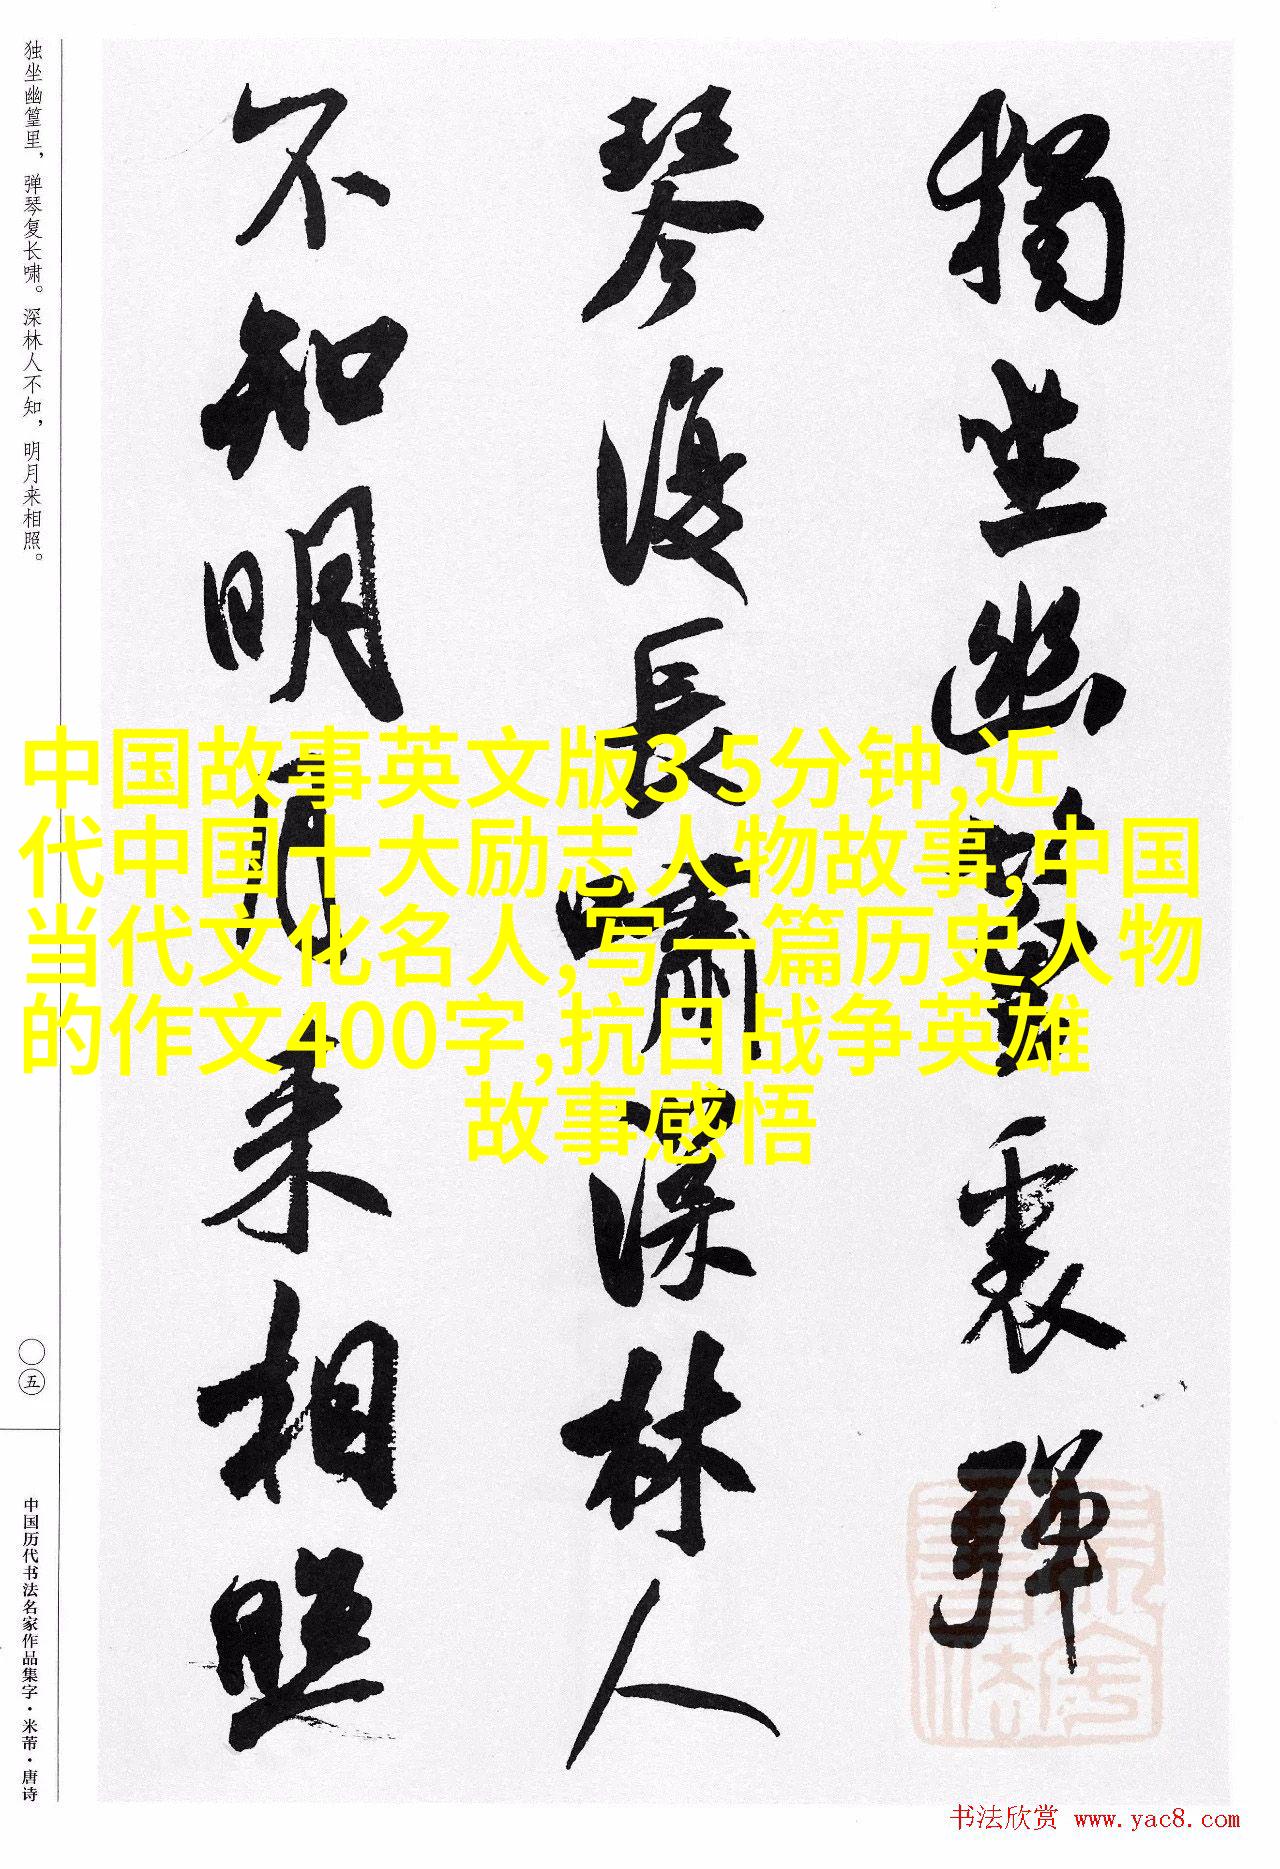 獨坐幽篁裏彈
琴復長嘯深林人
不知明月来相照
独坐幽篁里，弹琴复长啸。深林人不知，明月来相照。
〇五
中国历代书法名家作品集字·米芾·唐诗
中国故事英文版3 5分钟,近
代中国十大励志人物故事,中国
当代文化名人,写一篇历史人物
的作文400字,抗日战争英雄
故事感悟
书法欣赏 www.yac8.com